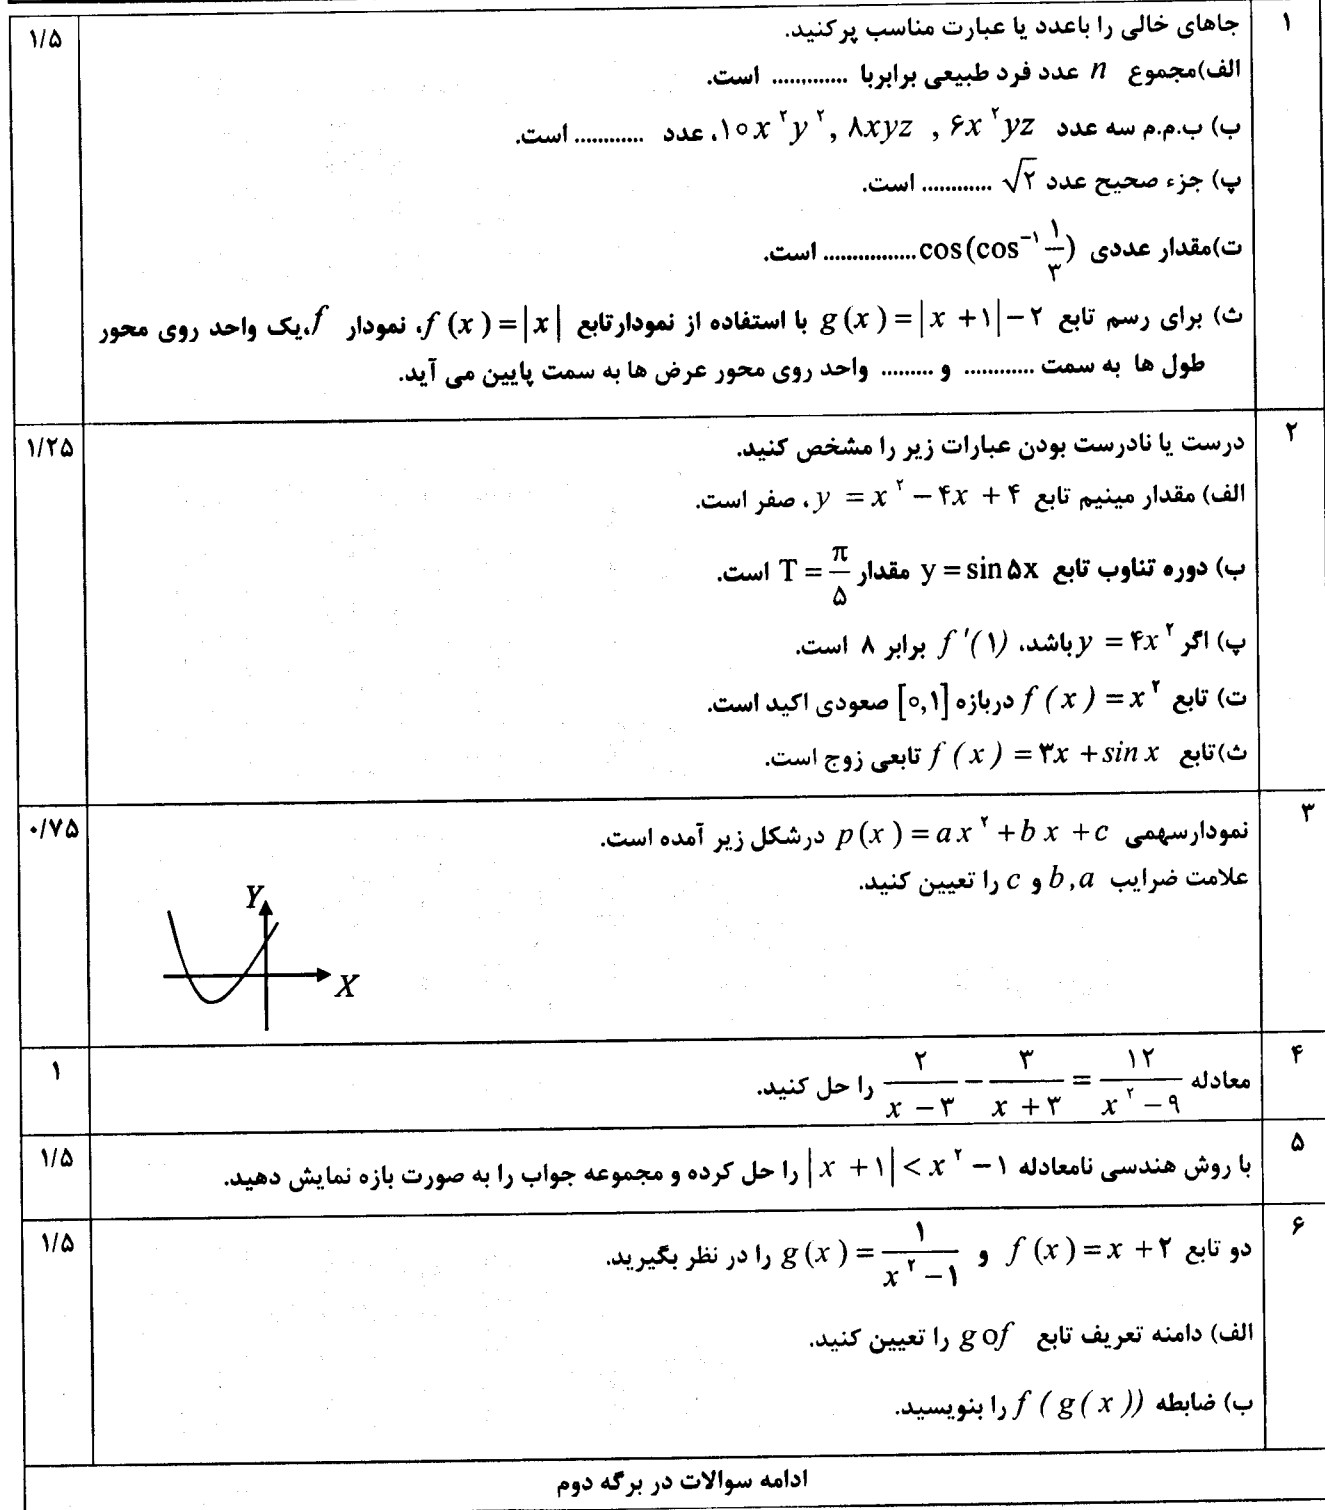 ۱
جاهای خالی را باعدد یا عبارت مناسب پرکنید.
۱/۵
الف)مجموع n عدد فرد طبیعی برابربا ............. است.
ب) ب.م.م سه عدد ۶x²yz , ۸xyz , ۱۰x²y²، عدد ............ است.
پ) جزء صحیح عدد √۲ ............ است.
ت)مقدار عددی cos(cos⁻¹ ۱/۳)................ است.
ث) برای رسم تابع g(x)=|x+۱|−۲ با استفاده از نمودارتابع f(x)=|x|، نمودار f،یک واحد روی محور
طول ها به سمت ............ و ......... واحد روی محور عرض ها به سمت پایین می آید.
۲
درست یا نادرست بودن عبارات زیر را مشخص کنید.
۱/۲۵
الف) مقدار مینیم تابع y = x² − ۴x + ۴ ، صفر است.
ب) دوره تناوب تابع y = sin ۵x مقدار T = π/۵ است.
پ) اگر y = ۴x² باشد، f ′(۱) برابر ۸ است.
ت) تابع f (x) = x² دربازه [۰,۱] صعودی اکید است.
ث)تابع f (x) = ۳x + sin x تابعی زوج است.
۳
نمودارسهمی p(x) = ax² + bx + c درشکل زیر آمده است.
۰/۷۵
علامت ضرایب b,a و c را تعیین کنید.
Y
X
۴
معادله ۲/(x−۳) − ۳/(x+۳) = ۱۲/(x²−۹) را حل کنید.
۱
۵
با روش هندسی نامعادله |x+۱| < x²−۱ را حل کرده و مجموعه جواب را به صورت بازه نمایش دهید.
۱/۵
۶
دو تابع f (x) = x + ۲ و g(x) = ۱/(x²−۱) را در نظر بگیرید.
۱/۵
الف) دامنه تعریف تابع gof را تعیین کنید.
ب) ضابطه f ( g( x )) را بنویسید.
ادامه سوالات در برگه دوم